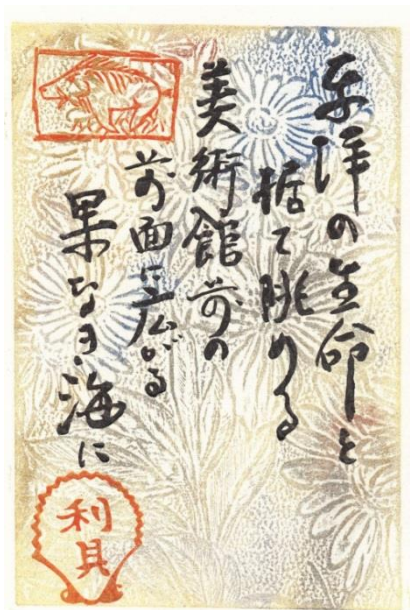 の生命と
据て眺める
美術館前の
前面に広がる
果なき海に
利貝